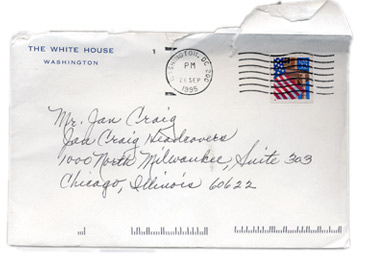 THE WHITE HOUSE
WASHINGTON
WASHINGTON, DC 200
PM
SEP
1995
Mr. Jan Craig
Jan Craig Headcovers
1000 North Milwaukee, Suite 303
Chicago, Illinois 60622